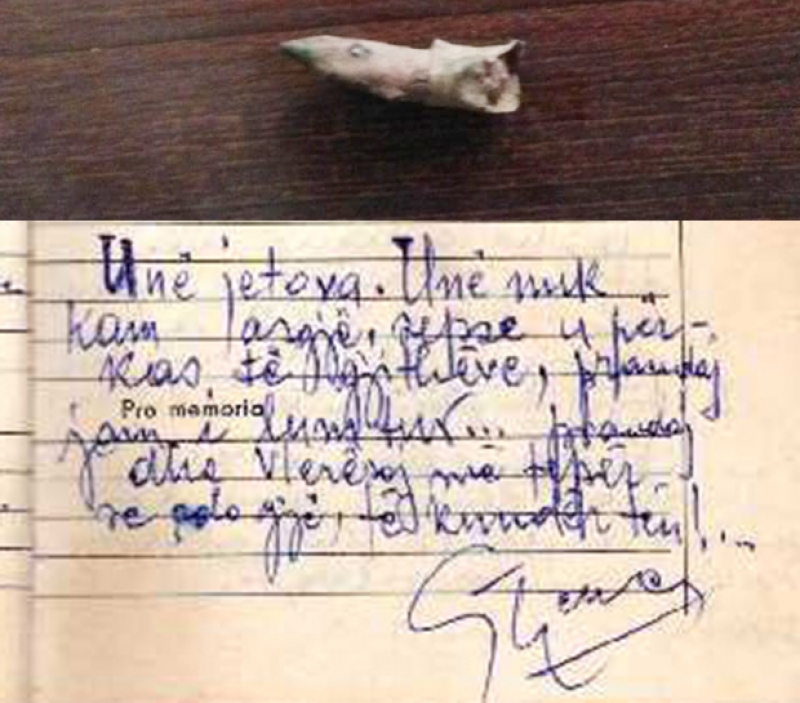 Unë jetova. Unë nuk
kam asgjë, sepse u për-
kas të gjithëve, prandaj
Pro memoria
jam i lumtur... prandaj
dhe vlerësoj më tepër
se çdo gjë, të kundërtën!...